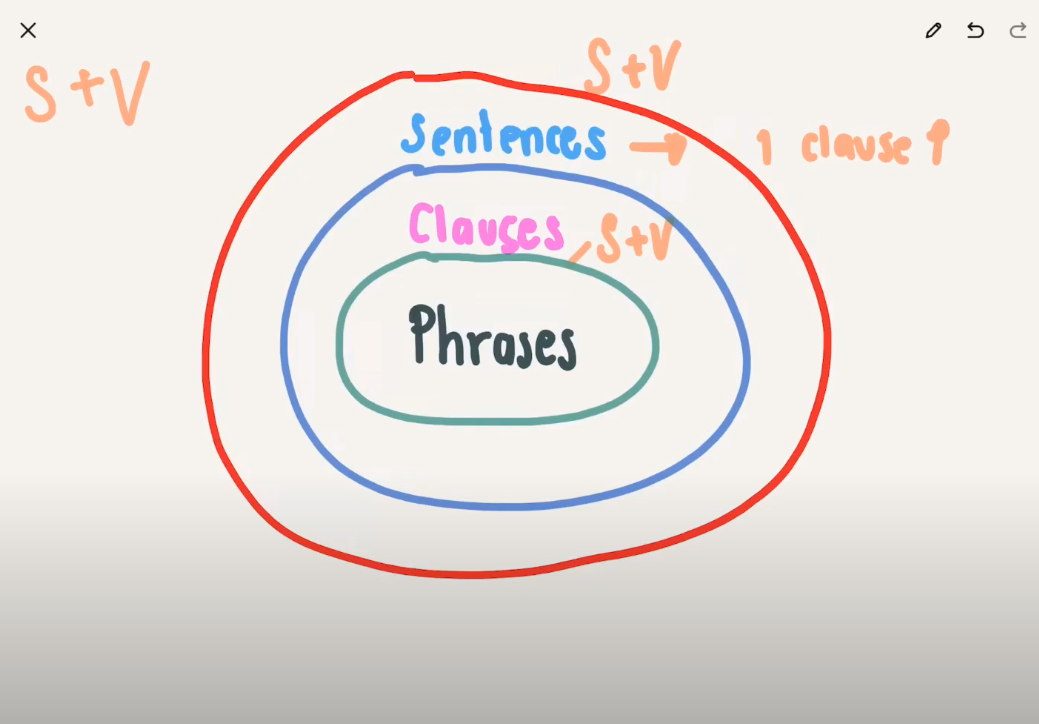 S+V
S+V
Sentences → 1 clause ↑
Clauses
S+V
Phrases